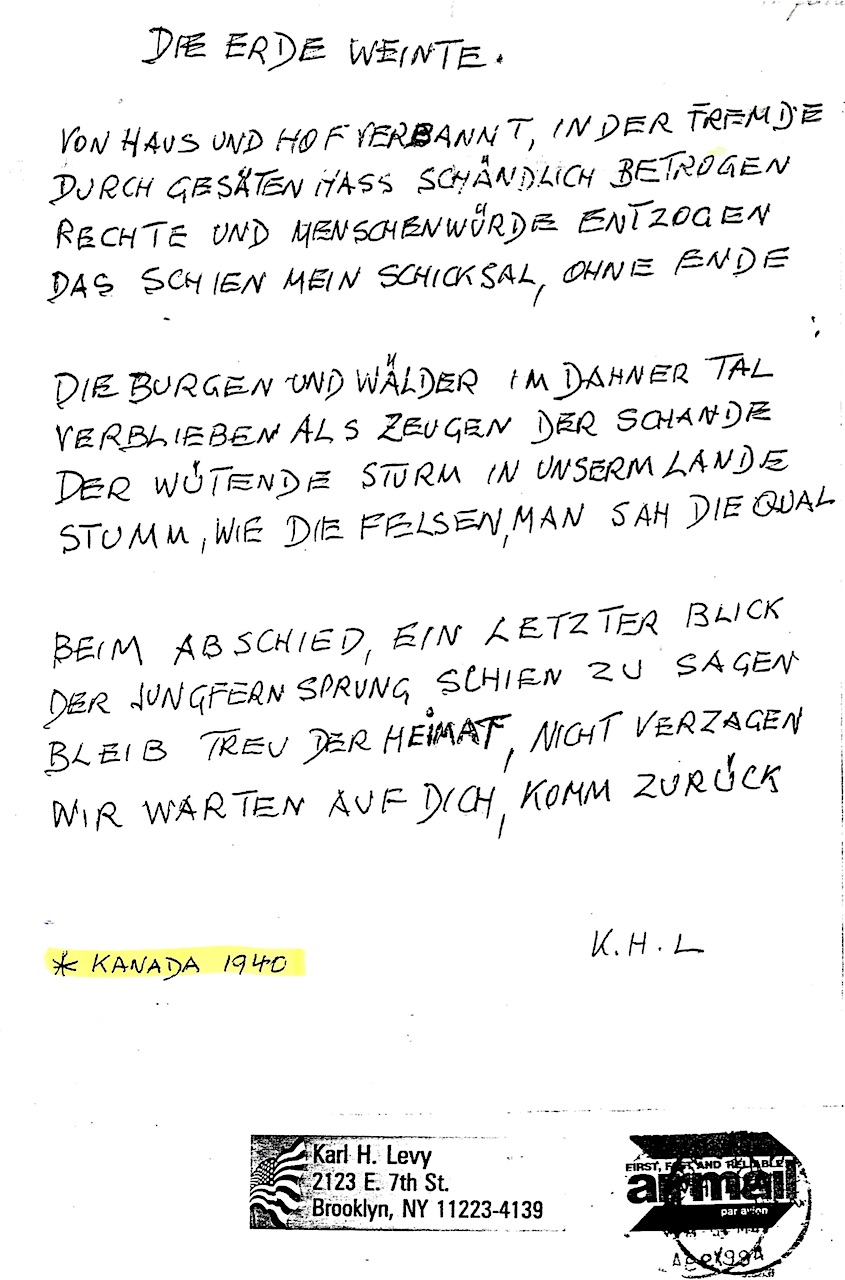 DIE ERDE WEINTE.
VON HAUS UND HOF VERBANNT, IN DER FREMDE
DURCH GESÄTEN HASS SCHÄNDLICH BETROGEN
RECHTE UND MENSCHENWÜRDE ENTZOGEN
DAS SCHIEN MEIN SCHICKSAL, OHNE ENDE
DIE BURGEN UND WÄLDER IM DAHNER TAL
VERBLIEBEN ALS ZEUGEN DER SCHANDE
DER WÜTENDE STURM IN UNSERM LANDE
STUMM, WIE DIE FELSEN, MAN SAH DIE QUAL
BEIM ABSCHIED, EIN LETZTER BLICK
DER JUNGFERNSPRUNG SCHIEN ZU SAGEN
BLEIB TREU DER HEIMAT, NICHT VERZAGEN
WIR WARTEN AUF DICH, KOMM ZURÜCK
K.H.L
* KANADA 1940
Karl H. Levy
2123 E. 7th St.
Brooklyn, NY 11223-4139
FIRST, FAST AND RELIABLE
air mail
par avion